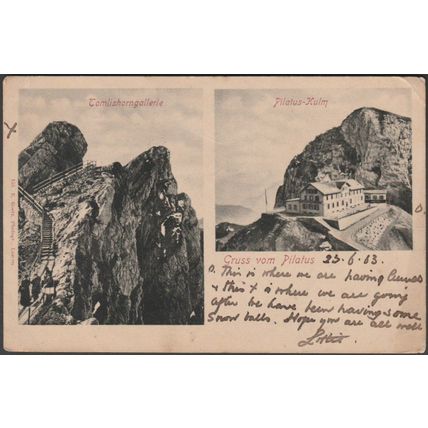 Tomlishorngallerie
Pilatus-Kulm
x
Gruss vom Pilatus 23.6.03.
o. This is where we are having lunch
& this x is where we are going
after we have been having some
snow balls. Hope you are all well